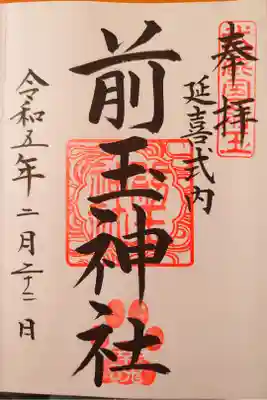 奉拝
延喜式内
前玉神社
令和五年二月二十二日